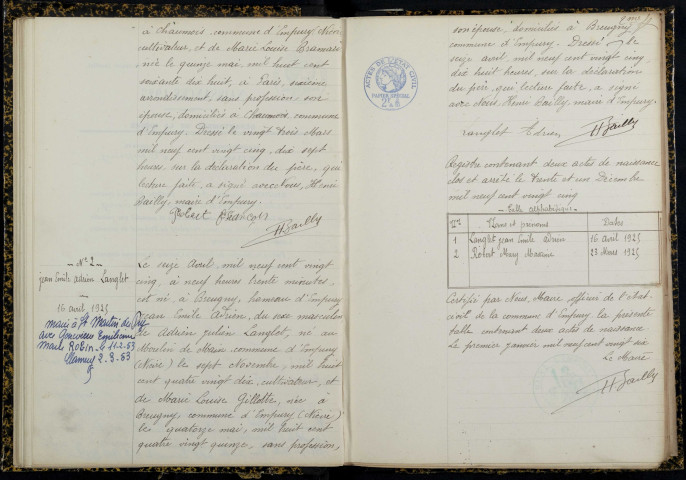 à Chaumois, commune d'Empury, Nièvre,
cultivateur, et de Marie Louise
née le quinze mai, mil huit cent
soixante dix huit, à Paris, sixième
arrondissement, sans profession, son
épouse, domiciliés à Chaumois, commune
d'Empury. Dressé le vingt trois Mars
mil neuf cent vingt cinq, dix sept
heures, sur la déclaration du père, qui
lecture faite, a signé avec Nous, Henri
Bailly, maire d'Empury.
Robert
HBailly
N° 2
Jean Emile Adrien Langlet
16 avril 1925
marié à St Martin du Puy
avec Geneviève Emilienne
Marie Robin le 11.2.53
2.3.53
Le seize Avril, mil neuf cent vingt
cinq, à neuf heures trente minutes,
est né, à Breugny, hameau d'Empury
Jean Emile Adrien, du sexe masculin
de Adrien Julien Langlet, né au
Moulin de commune d'Empury
(Nièvre) le sept Novembre, mil huit
cent quatre vingt dix, cultivateur, et
de Marie Louise Gillotte, née à
Breugny, commune d'Empury (Nièvre)
le quatorze mai, mil huit cent
quatre vingt quinze, sans profession,
ACTES DE L'ETAT CIVIL
PAPIER SPECIAL
son épouse, domiciliés à Breugny
commune d'Empury. Dressé le
seize avril, mil neuf cent vingt cinq,
dix huit heures, sur la déclaration
du père, qui, lecture faite, a signé
avec Nous, Henri Bailly, maire d'Empury.
Langlet HBailly
Registre contenant deux actes de naissance
clos et arrêté le trente et un Décembre
mil neuf cent vingt cinq
Table alphabétique
Nos Noms et prénoms Dates
1 Langlet Jean Emile Adrien 16 avril 1925
2 Robert Mary Maxime 23 Mars 1925
Certifié par Nous, Maire officier de l'état
civil de la commune d'Empury la présente
table contenant deux actes de naissance.
Le premier janvier mil neuf cent vingt six
Le Maire
HBailly